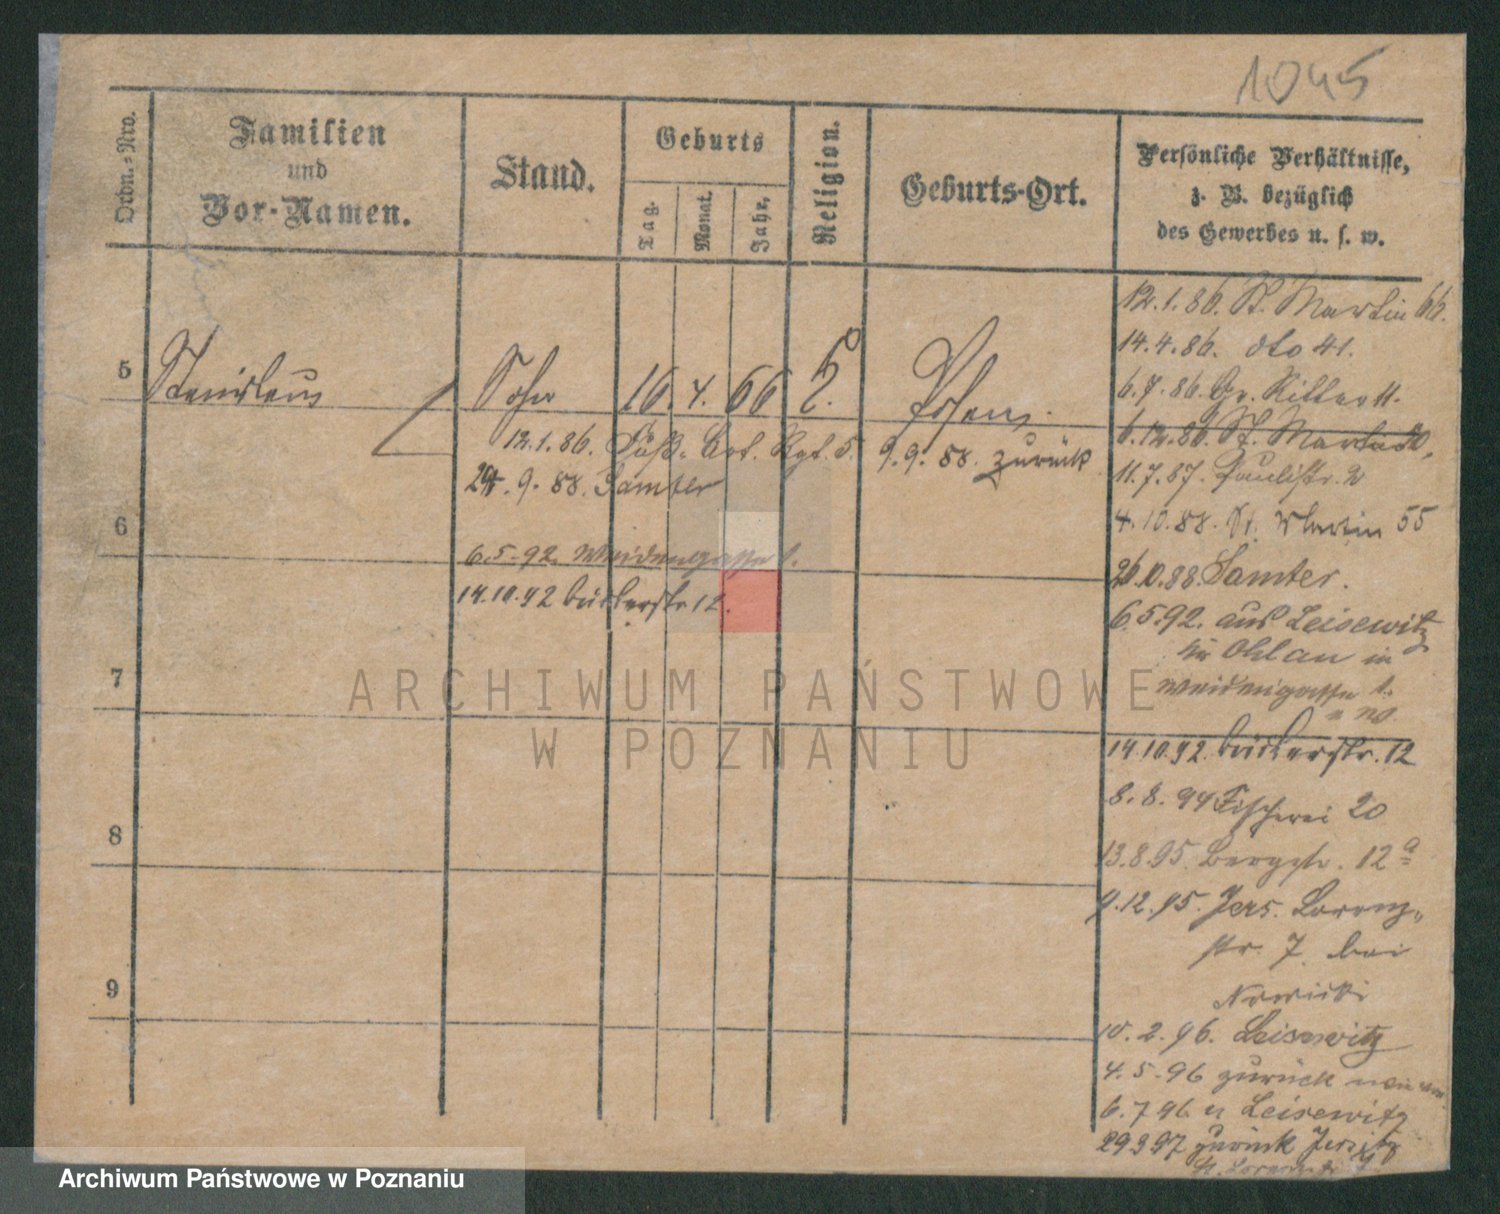 1045
Ordn.=Nro.
Familien
und
Vor-Namen.
Stand.
Geburts
Tag.
Monat.
Jahr.
Religion.
Geburts-Ort.
Persönliche Verhältnisse,
z. B. bezüglich
des Gewerbes u. s. w.
5 Stanislaus Sohn 16. 4. 66 Posen.
12.1.86. Art. Rgt. 5. 9.9.88. zurück
24.9.88. Samter
6
6.5.92. Weidengasse 1.
14.10.92 Büttelstr. 12.
7
8
9
12.1.86. St. Martin 66.
14.4.86. dto 41.
6.7.86. Gr. Ritter 11.
6.12.86. St. Martin
11.7.87. Paulistr. 2
4.10.88. St. Martin 55
26.10.88. Samter.
6.5.92. aus Leisewitz
Kr Ohlau in
Weidengasse 1.
14.10.92. Büttelstr. 12
8.8.94 Fischerei 20
13.8.95. Bergstr. 12a
9.12.95. Jers. Lorenz-
str. 7. bei
Nowicki
10.2.96. Leisewitz
4.5.96 zurück
6.7.96. n Leisewitz
29 3 97 zurück Jersitz
ARCHIWUM PAŃSTWOWE
W POZNANIU
Archiwum Państwowe w Poznaniu